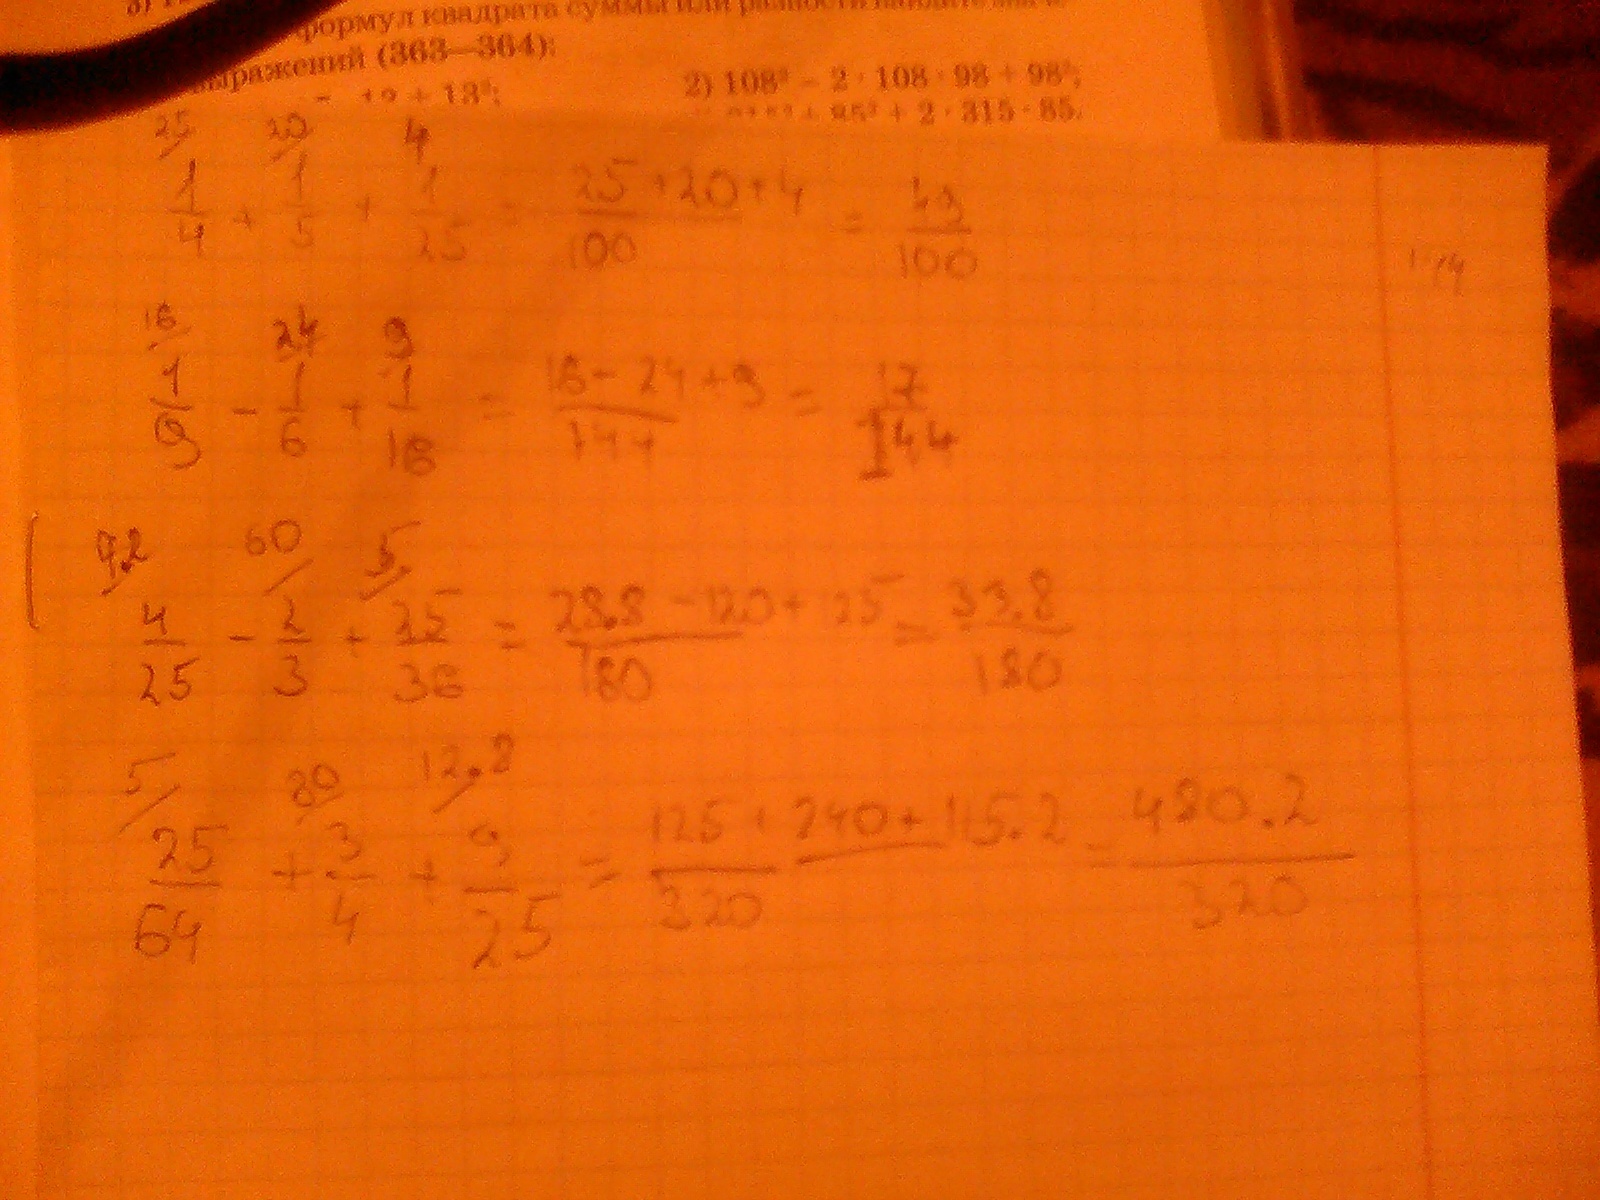 формул квадрата суммы или разности
выражений (363—364):
+ 13²;
2) 108² − 2 · 108 · 98 + 98²;
+ 85² + 2 · 315 · 85.
25 20 4
1/4 + 1/5 + 1/25 = 25+20+4/100 = 49/100
16 24 9
1/9 − 1/6 + 1/16 = 16−24+9/144 = 17/144
7.2 60 5
4/25 − 2/3 + 25/36 = 28.8−120+125/180 = 33.8/180
5 80 12.8
25/64 + 3/4 + 9/25 = 125+240+115.2/320 = 480.2/320